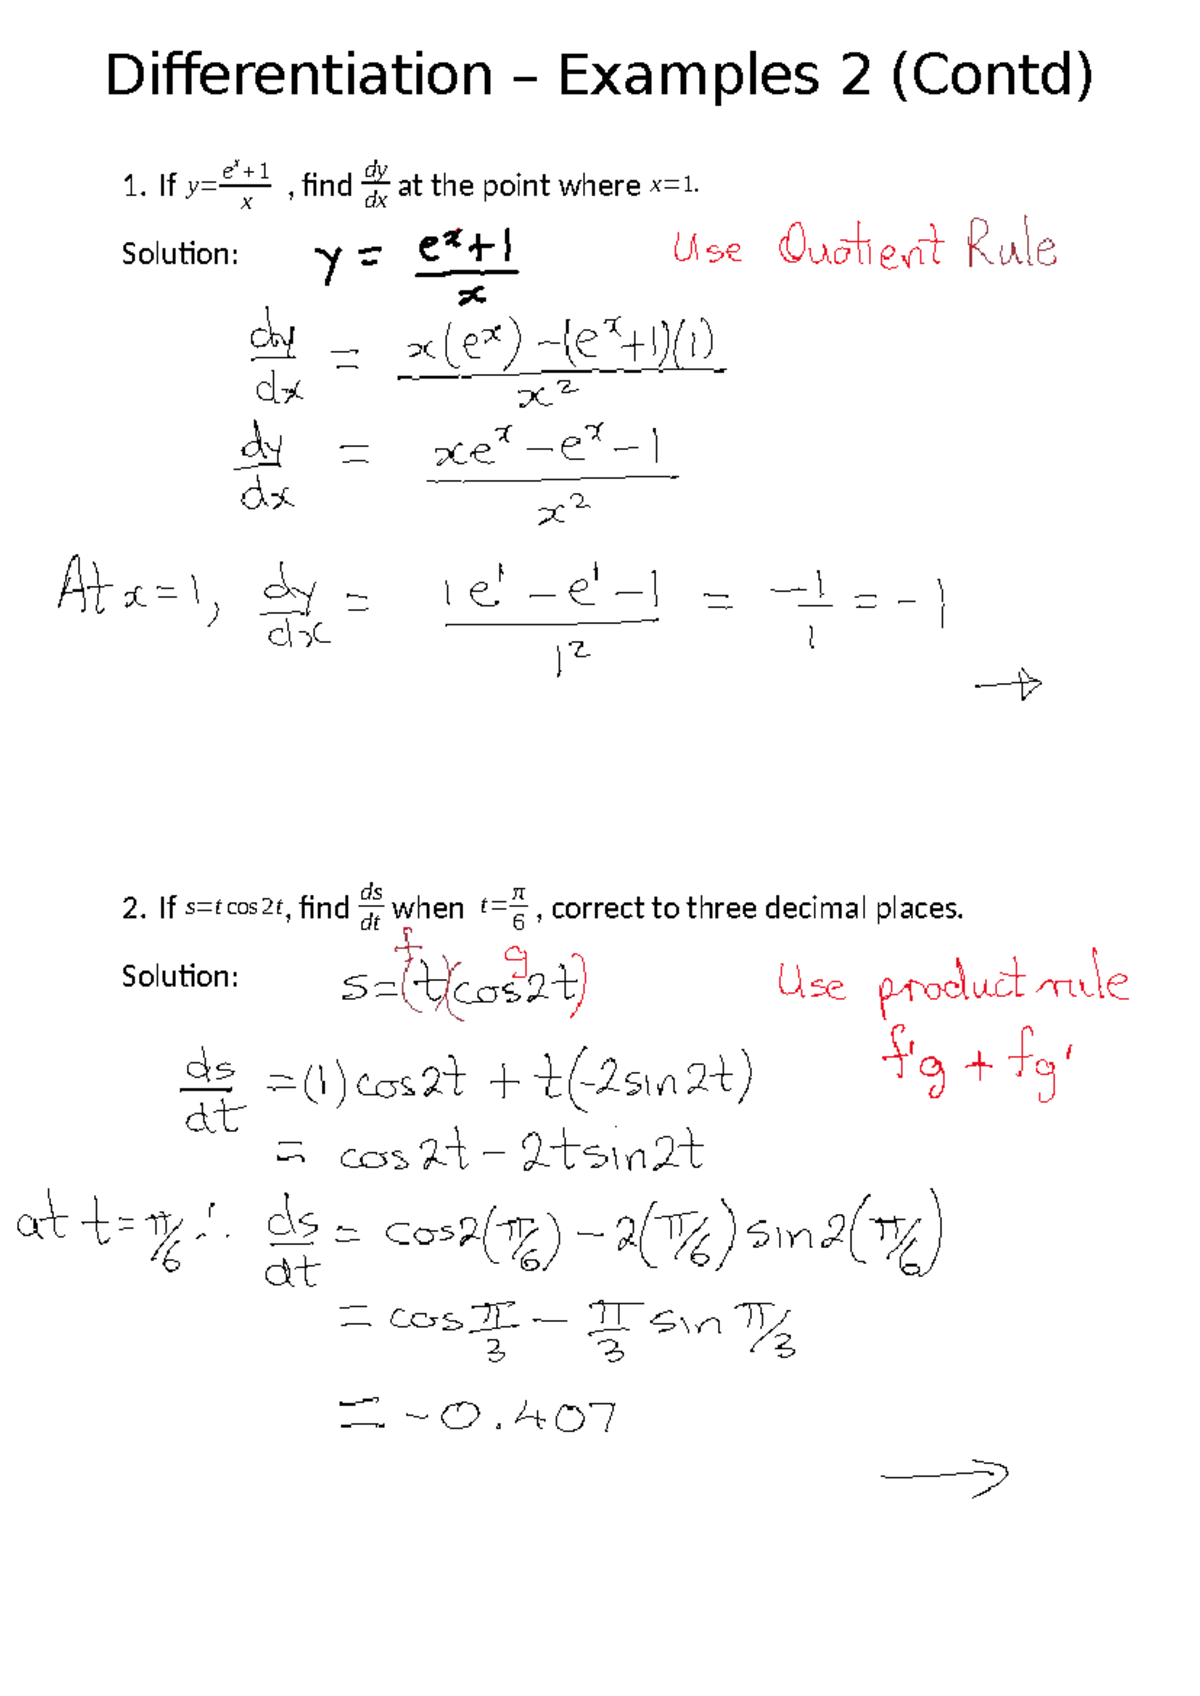 Differentiation – Examples 2 (Contd)
1. If y=(eˣ+1)/x , find dy/dx at the point where x=1.
Solution: y = (eˣ+1)/x Use Quotient Rule
dy/dx = (x(eˣ) -(eˣ+1)(1))/x²
dy/dx = (xeˣ - eˣ - 1)/x²
At x=1, dy/dx = (1e¹ - e¹ - 1)/1² = -1/1 = -1
→
2. If s=t cos2t, find ds/dt when t=π/6 , correct to three decimal places.
f g
Solution: s=(t)(cos2t) Use product rule
f'g + fg'
ds/dt =(1)cos2t + t(-2sin2t)
= cos2t - 2tsin2t
at t=π/6 ∴ ds/dt = cos2(π/6) - 2(π/6)sin2(π/6)
= cos π/3 - π/3 sin π/3
= -0.407
→